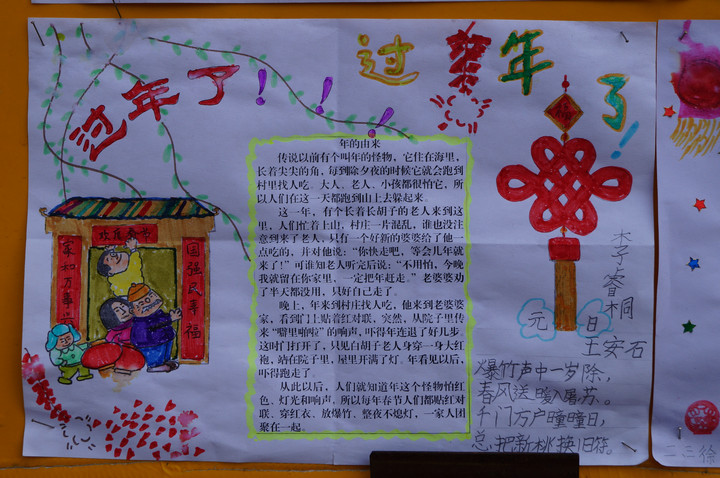 过年了!!!
过年了!
欢度春节
家和万事兴
国强民幸福
年的由来
传说以前有个叫年的怪物，它住在海里，
长着尖尖的角，每到除夕夜的时候它就会跑到
村里找人吃。大人、老人、小孩都很怕它，所
以人们在这一天都跑到山上去躲起来。
这一年，有个长着长胡子的老人来到这
里，人们忙着上山，村庄一片混乱，谁也没注
意到来了老人，只有一个好新的婆婆给了他一
点吃的，并对他说：“你快走吧，等会儿年就
来了！”可谁知老人听完后说：“不用怕，今晚
我就留在你家里，一定把年赶走。”老婆婆劝
了半天都没用，只好自己走了。
晚上，年来到村庄找人吃，他来到老婆婆
家，看到门上贴着红对联，突然，从院子里传
来“噼里啪啦”的响声，吓得年连退了好几步。
这时门打开了，只见白胡子老人身穿一身大红
袍，站在院子里，屋里开满了灯。年看见以后，
吓得跑走了。
从此以后，人们就知道年这个怪物怕红
色、灯光和响声，所以每年春节人们都贴红对
联、穿红衣、放爆竹、整夜不熄灯，一家人团
聚在一起。
李睿桐
元日
王安石
爆竹声中一岁除,
春风送暖入屠苏。
千门万户曈曈日,
总把新桃换旧符。
二三徐